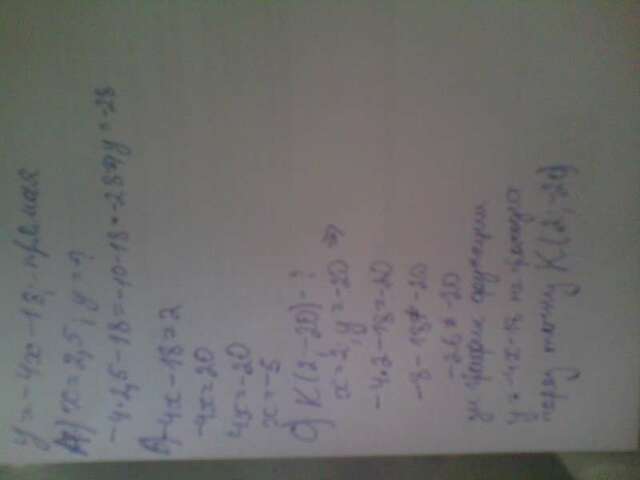 y = -4x - 18, прямая
A) x = 2,5, y = ?
-4·2,5 - 18 = -10 - 18 = -28 => y = -28
-4x - 18 = 2
-4x = 20
4x = -20
x = -5
K(2; -20) - ?
x = 2, y = -20 =>
-4·2 - 18 = -20
-8 - 18 ≠ -20
-26 ≠ -20
график функции
y = -4x - 18 не проходит
через точку K(2; -20)